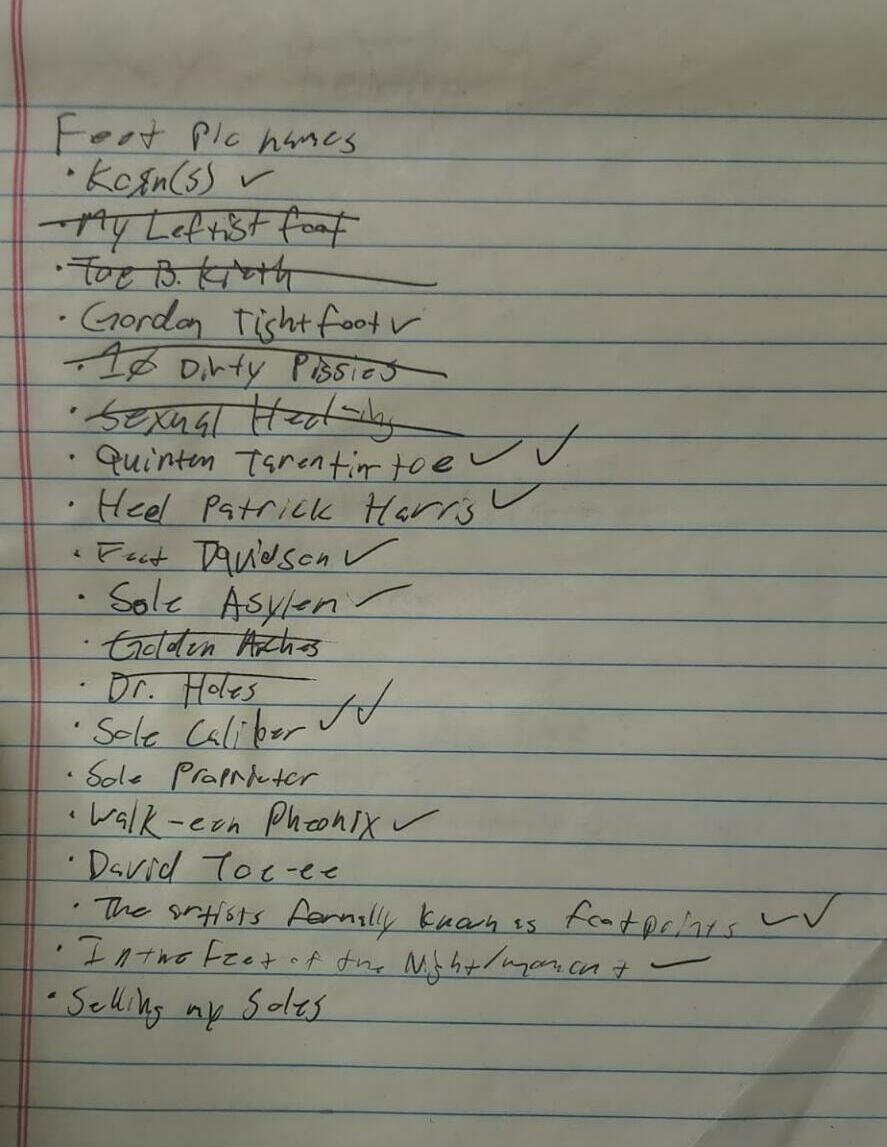 Foot Pic names
· Korn(s) ✓
· My Leftist foot
· Toe B. Kieth
· Gordon Tightfoot ✓
· 10 Dirty Pissies
· Sexual Heel-ing
· Quinten Tarentin toe ✓ ✓
· Heel Patrick Harris ✓
· Feet Davidson ✓
· Sole Asylem ✓
· Golden Arches
· Dr. Holes
· Sole Caliber ✓✓
· Sole Proprieter
· Walk-een Pheonix ✓
· David Toe-ee
· The artists formally known as footprints ✓✓
· In the Feet of the Night/moment ✓
· Selling my Soles